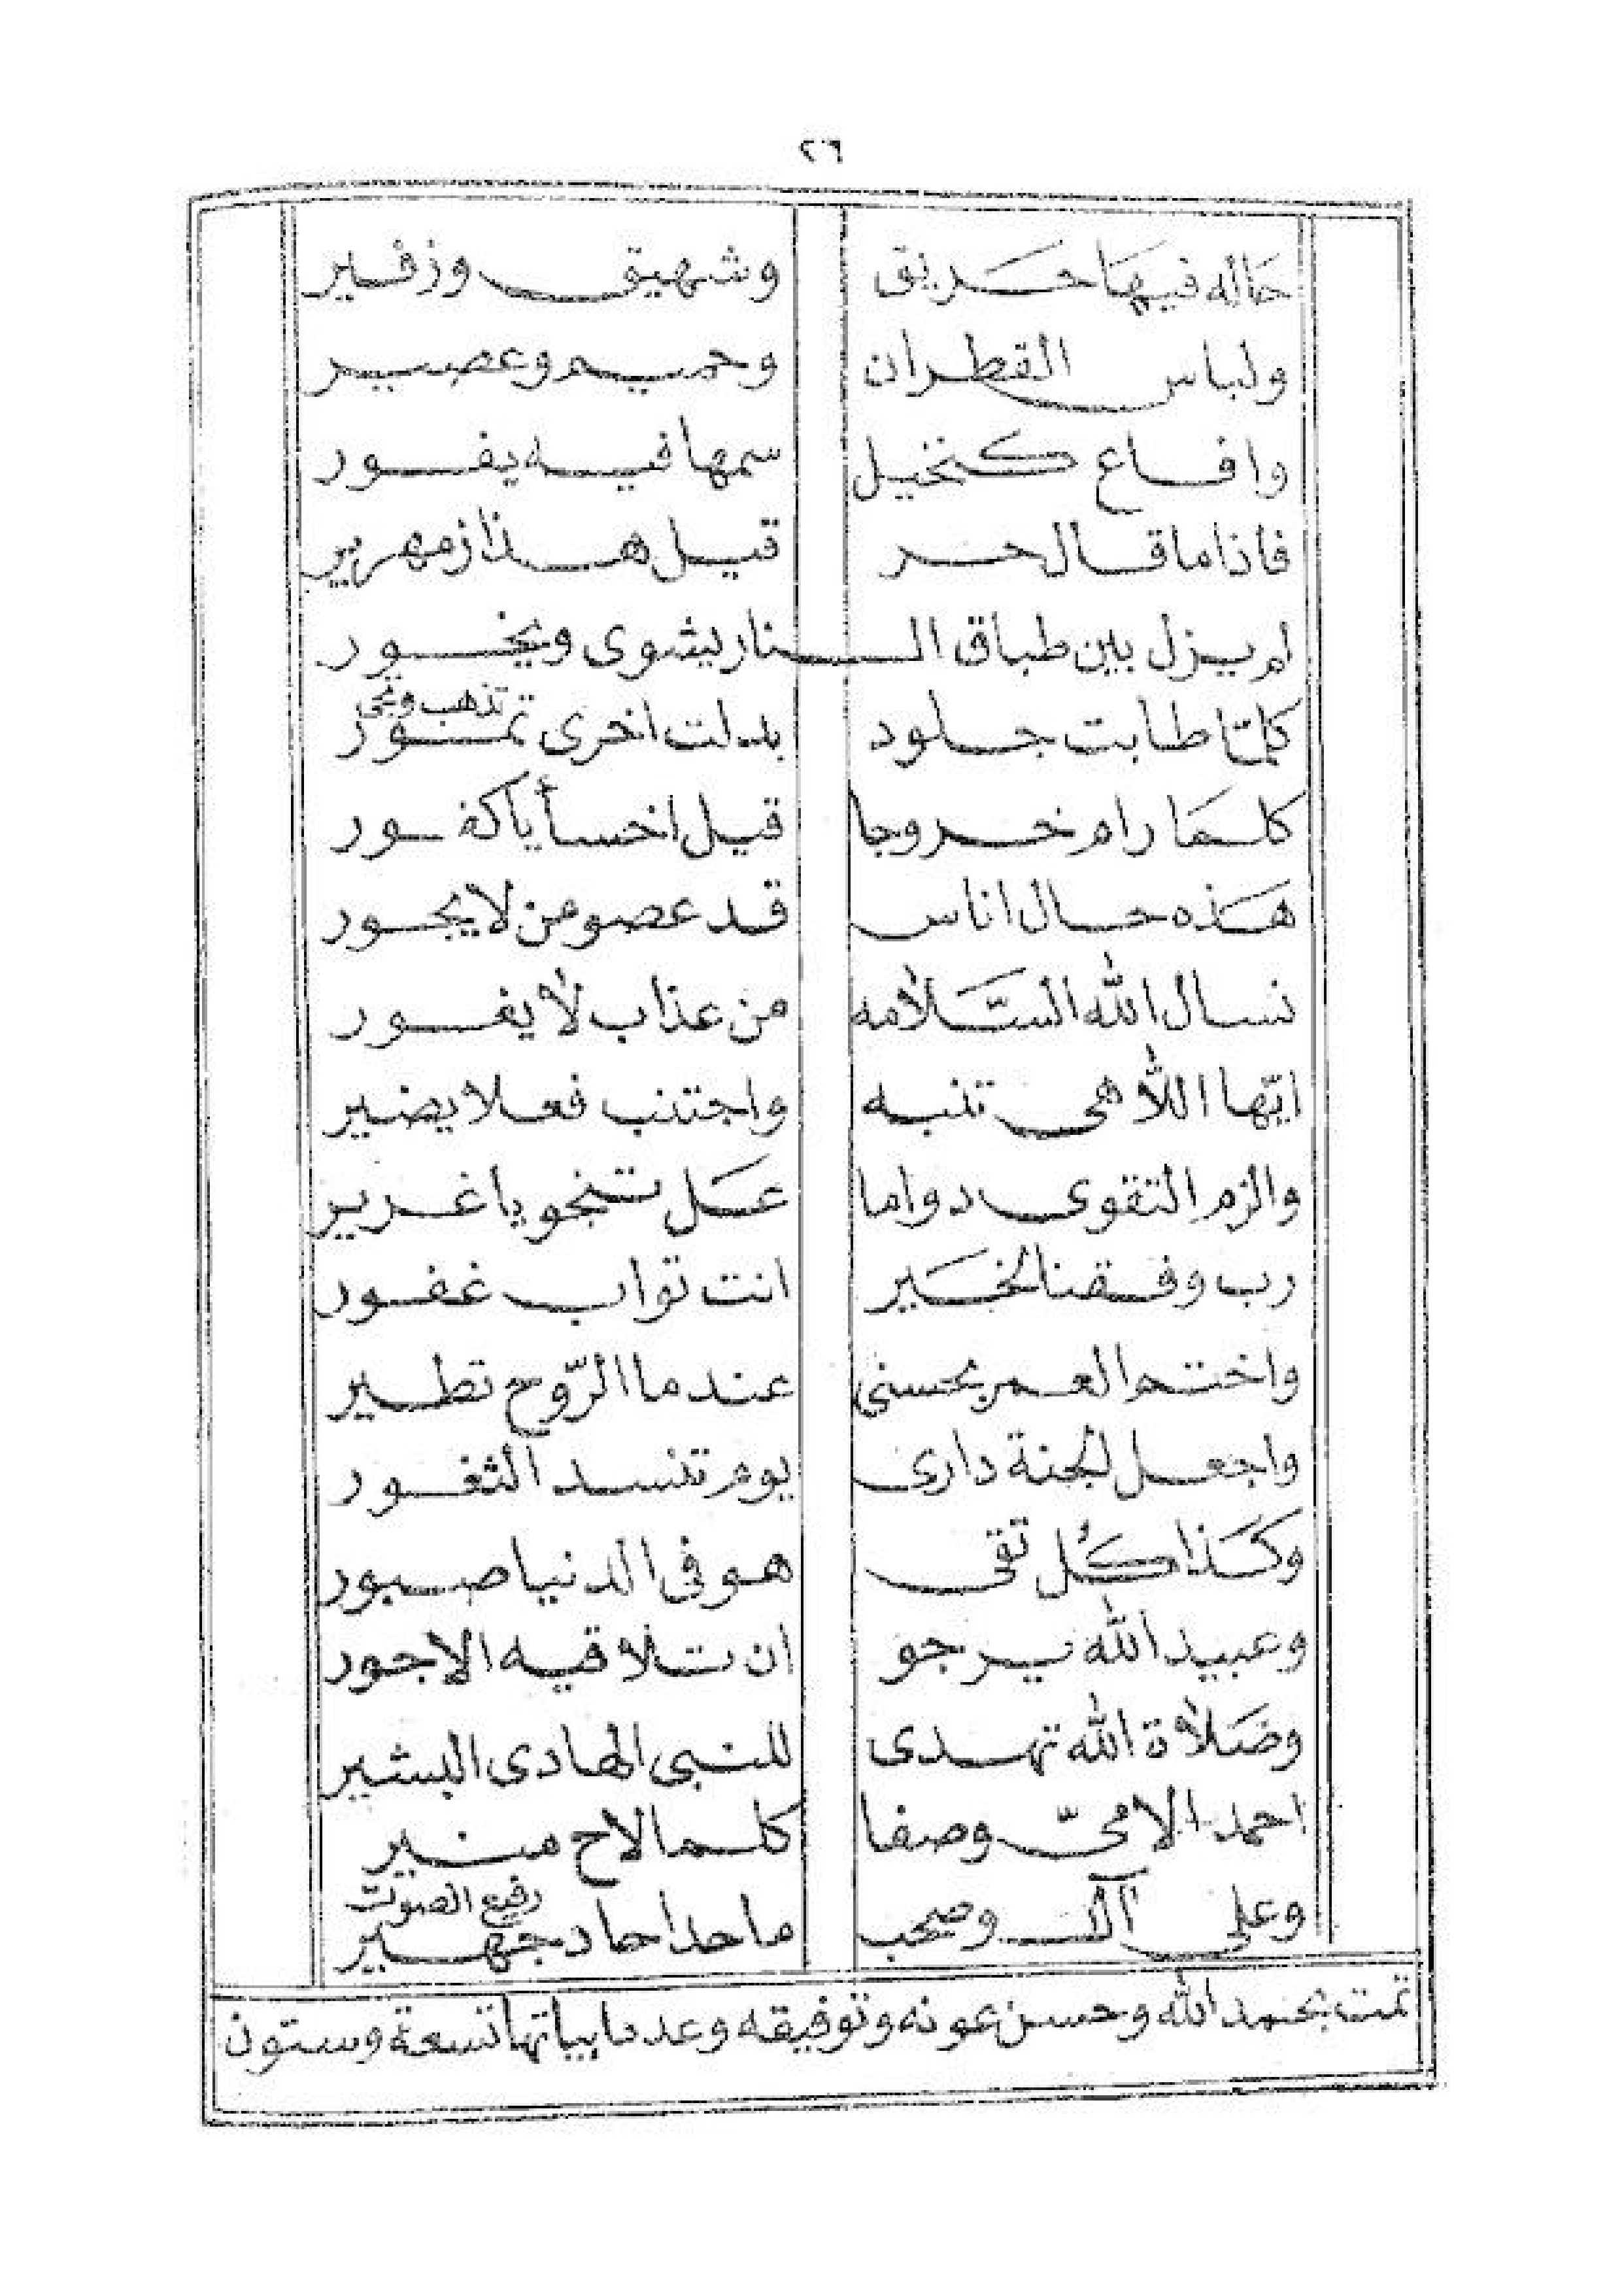 ٢٠٦
حماله فيها حريق وشهيق وزفير
ولباس القطران وحميم وعصير
وافاع كنخيل سمها فيه يفور
فاذا ما قال حر قيل هذا زمهرير
لم يزل بين طباق النار يشوى ويخور
تذهب وتجى
كلما طابت جلود بدلت اخرى تمور
كلما رام خروجا قيل اخسأ يا كفور
هذه حال اناس قد عصو من لا يجور
نسال الله السلامه من عذاب لا يفور
ايها اللاهى تنبه واجتنب فعلا يضير
والزم التقوى دواما عل تنجو يا غرير
رب وفقنا لخير انت تواب غفور
واختم العمر بحسنى عندما الروح تطير
واجعل لجنة دارى يوم تنسد الثغور
وكذا كل تقى هو فى الدنيا صبور
وعبيد الله يرجو ان تلاقيه الاجور
وصلاة الله تهدى للنبى الهادى البشير
احمد الامىّ وصفا كلما لاح منير
رفيع الصوت
وعلى آل وصحب ما حدا حاد جهير
تمت بحمد الله وحسن عونه وتوفيقه وعدد ابياتها تسعة وستون